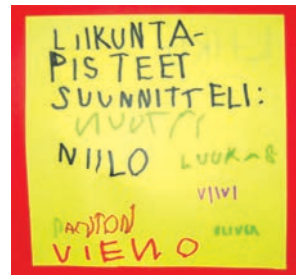 LIIKUNTA-
PISTEET
SUUNNITTELI:
NUUTTI
NIILO LUUKAS
VIIVI
ANTON OLIVER
VIENO